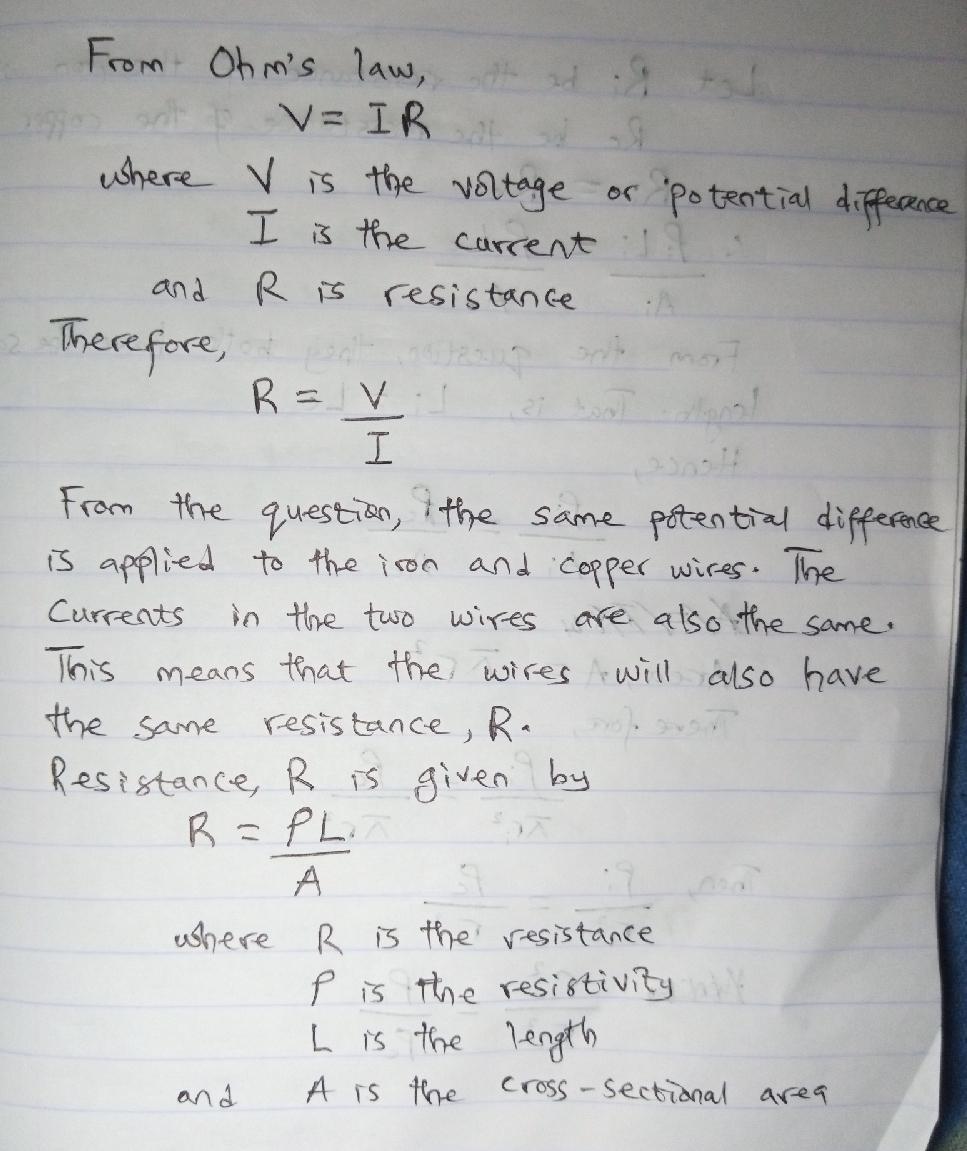 From Ohm's law,
V = IR
where V is the voltage or potential difference
I is the current
and R is resistance
Therefore,
R = V
I
From the question, the same potential difference
is applied to the iron and copper wires. The
Currents in the two wires are also the same.
This means that the wires will also have
the same resistance, R.
Resistance, R is given by
R = ρL
A
where R is the resistance
ρ is the resistivity
L is the length
and A is the cross-sectional area